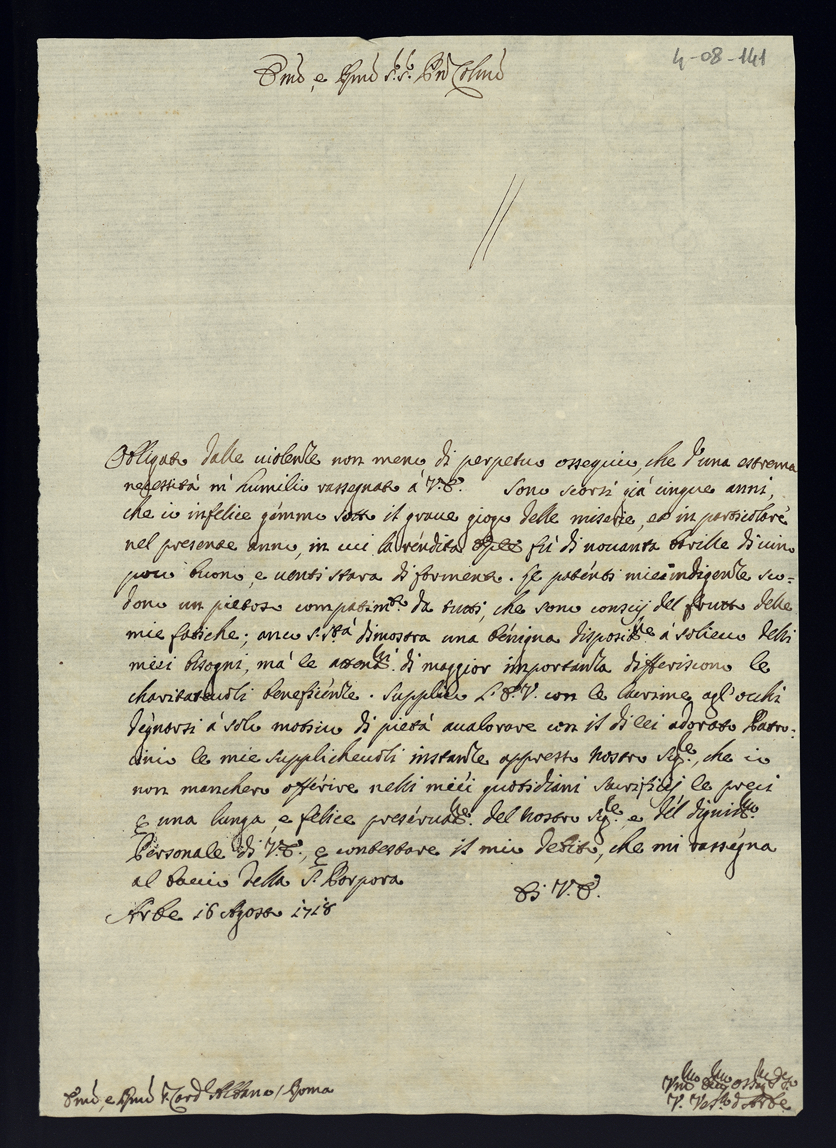 4-08-141
Emo, e Rmo S.r S.r Pne Colmo
Obligato dalle violenze non meno di perpetuo ossequio, che d'una estrema
necessità m'humilio rassegnato à V. E. Sono scorsi già cinque anni,
che io infelice gemmo sotto il graue giogo delle miserie, et in particolare
nel presente anno, in cui la rendita fù di nouanta barille di uino
poco buono, e uenti stara di formento. Le patenti mie indigenze sco=
dono un pietoso compatim.to da tutti, che sono conscij del frutto delle
mie fatiche; anco S. S.tà dimostra una benigna disposit.ne à solieuo delli
miei bisogni, mà le attent.ni di maggior importanza differiscono le
charitateuoli beneficenze. Supplico L'E. V. con le lacrime agl'occhi
degnarsi à solo motiuo di pietà aualorare con il di lei adorato Patro:
cinio le mie supplicheuoli instanze appresso Nostro Sig.re, che io
non mancherò offerire nelli miei quotidiani Sacrificij le preci
p una lunga, e felice preseruat.ne del Nostro Sig.re, e del dignis.mo
Personale di V. E., e p contestare il mio debito, che mi rassegna
al bacio della S. Porpora
Di V. E.
Arbe 16 Agosto 1718
Emo, e Rmo S. Card.l Albano / Roma
V. Vesc.o d'Arbe